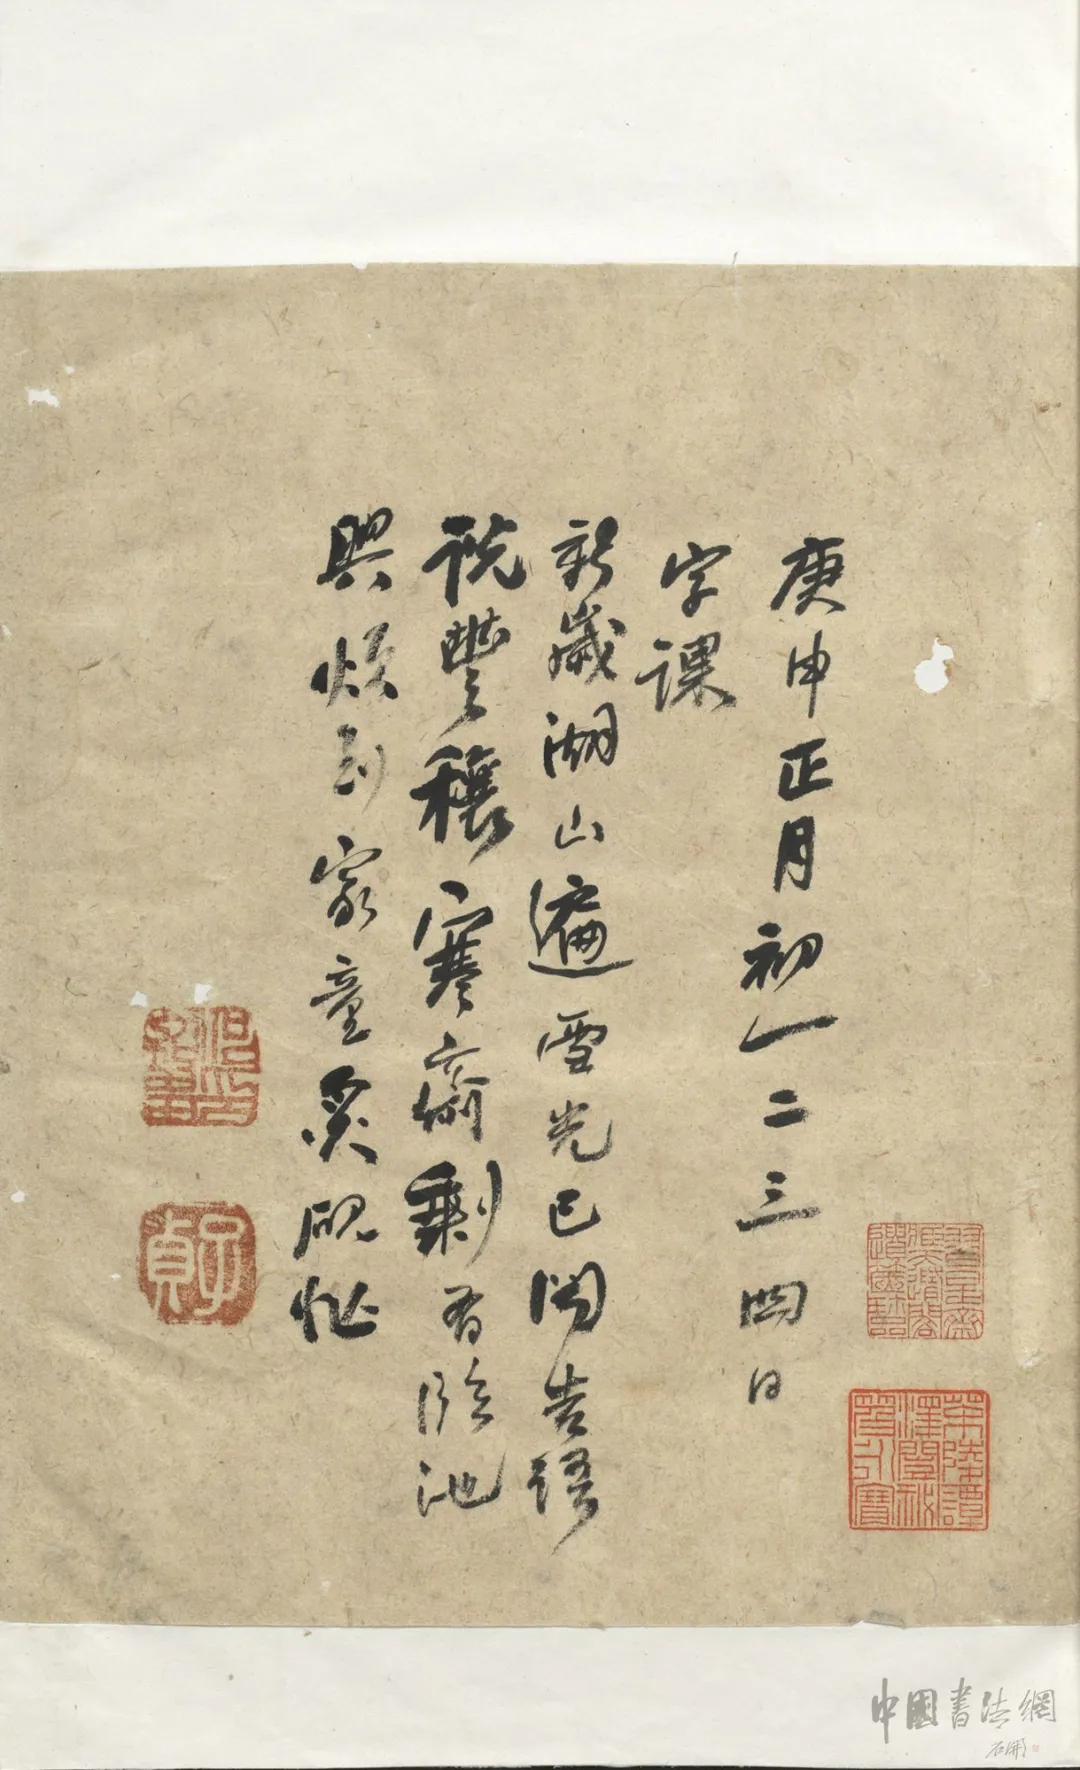 庚申正月初一二三四日
字課
新歲湖山遍雪光已聞吉語
說豐穰寒齋剩有臨池
興煩到家童炙硯忙
中國書法網